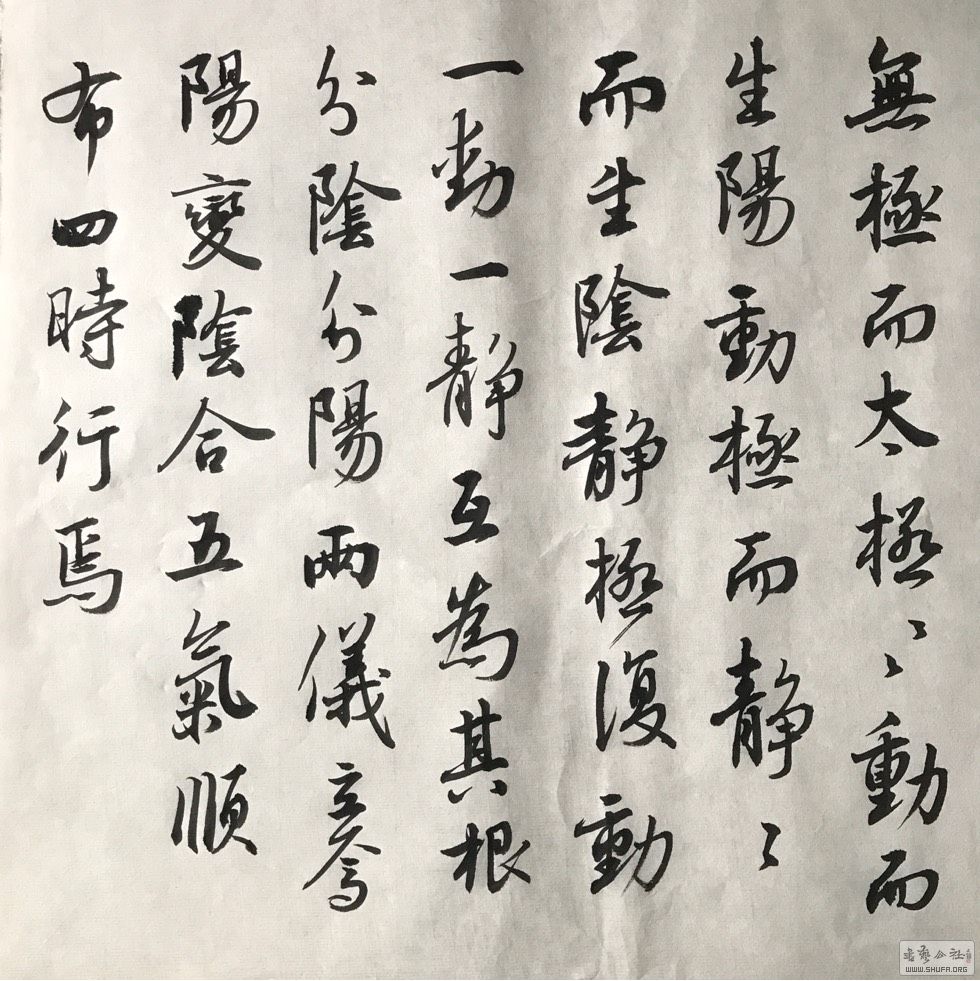 無極而太極〻〻動而
生陽動極而靜〻
而生陰靜極復動
一動一靜互為其根
分陰分陽兩儀立焉
陽變陰合五氣順
布四時行焉
書藝公社
WWW.SHUFA.ORG